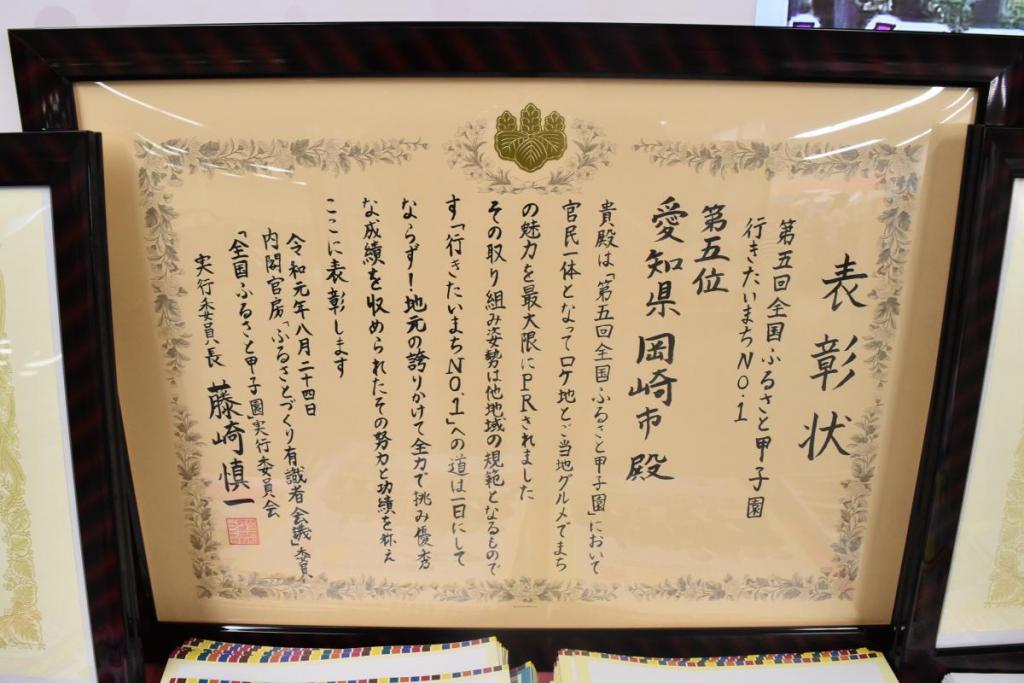 表彰状
第五回全国ふるさと甲子園
行きたいまちNO.1
第五位
愛知県岡崎市殿
貴殿は「第五回全国ふるさと甲子園」において
官民一体となってロケ地とご当地グルメでまち
の魅力を最大限にPRされました
その取り組み姿勢は他地域の規範となるもので
す「行きたいまちNO.1」への道は一日にして
ならず!地元の誇りかけて全力で挑み優秀
な成績を収められたその努力と功績を称え
ここに表彰します
令和元年八月二十四日
内閣官房「ふるさとづくり有識者会議」委員
「全国ふるさと甲子園」実行委員会
実行委員長 藤崎慎一